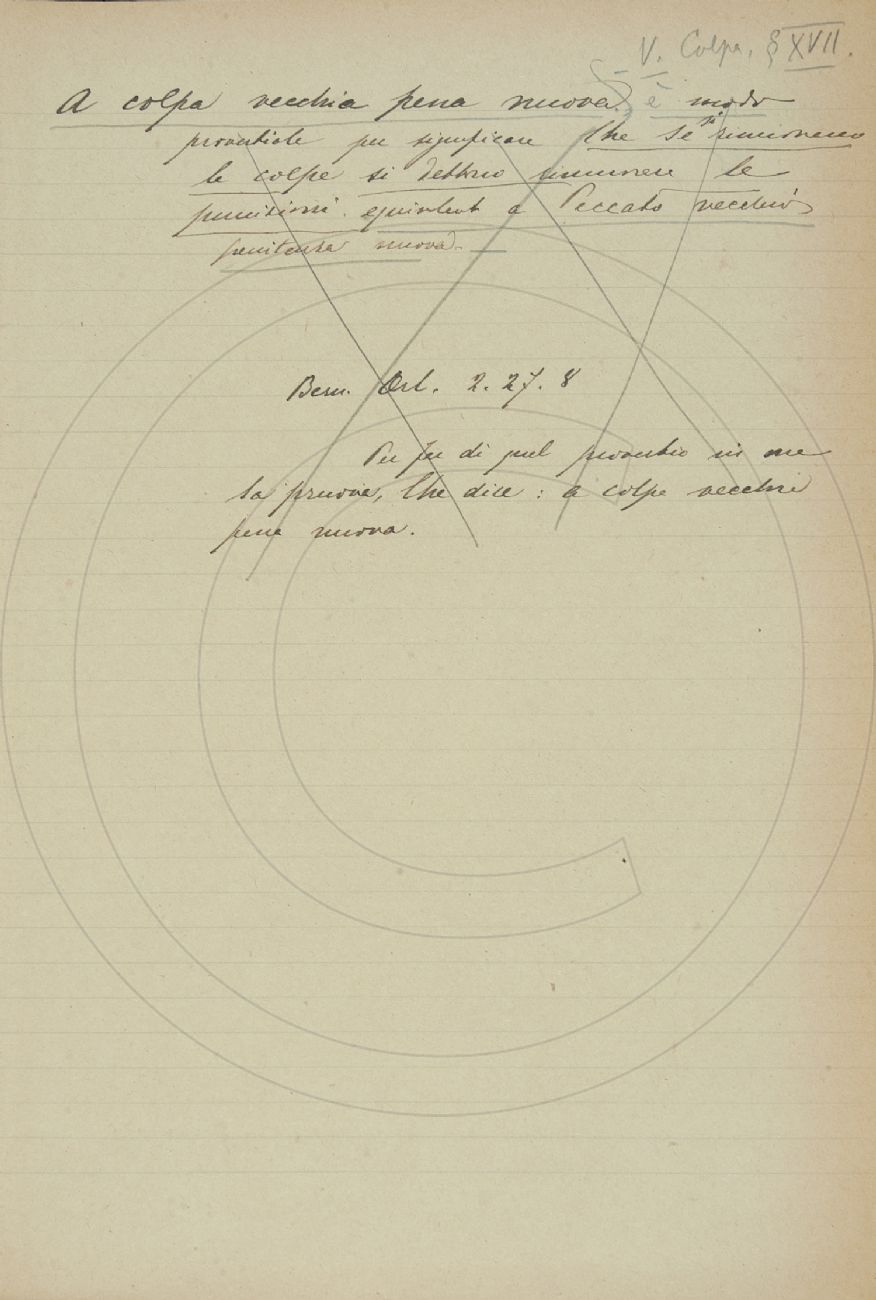 V. Colpa, § XVII.
A colpa vecchia pena nuova è modo
proverbiale per significare che se si rinnovano
le colpe si debbono rinnovare le
punizioni. equivalente a Peccato vecchio
penitenza nuova.
Bern. Orl. 2. 27. 8
Per fu di quel proverbio in me
la pruova, Che dice: a colpe vecchie
pena nuova.